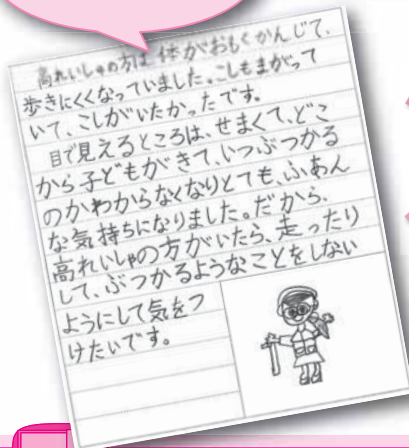 高れいしゃの方は体がおもくかんじて、
歩きにくくなっていました。こしもまがって
いて、こしがいたかったです。
目で見えるところは、せまくて、どこ
から子どもがきて、いつぶつかる
のかわからなくなりとても、ふあん
な気持ちになりました。だから、
高れいしゃの方がいたら、走ったり
して、ぶつかるようなことをしない
ようにして気をつ
けたいです。